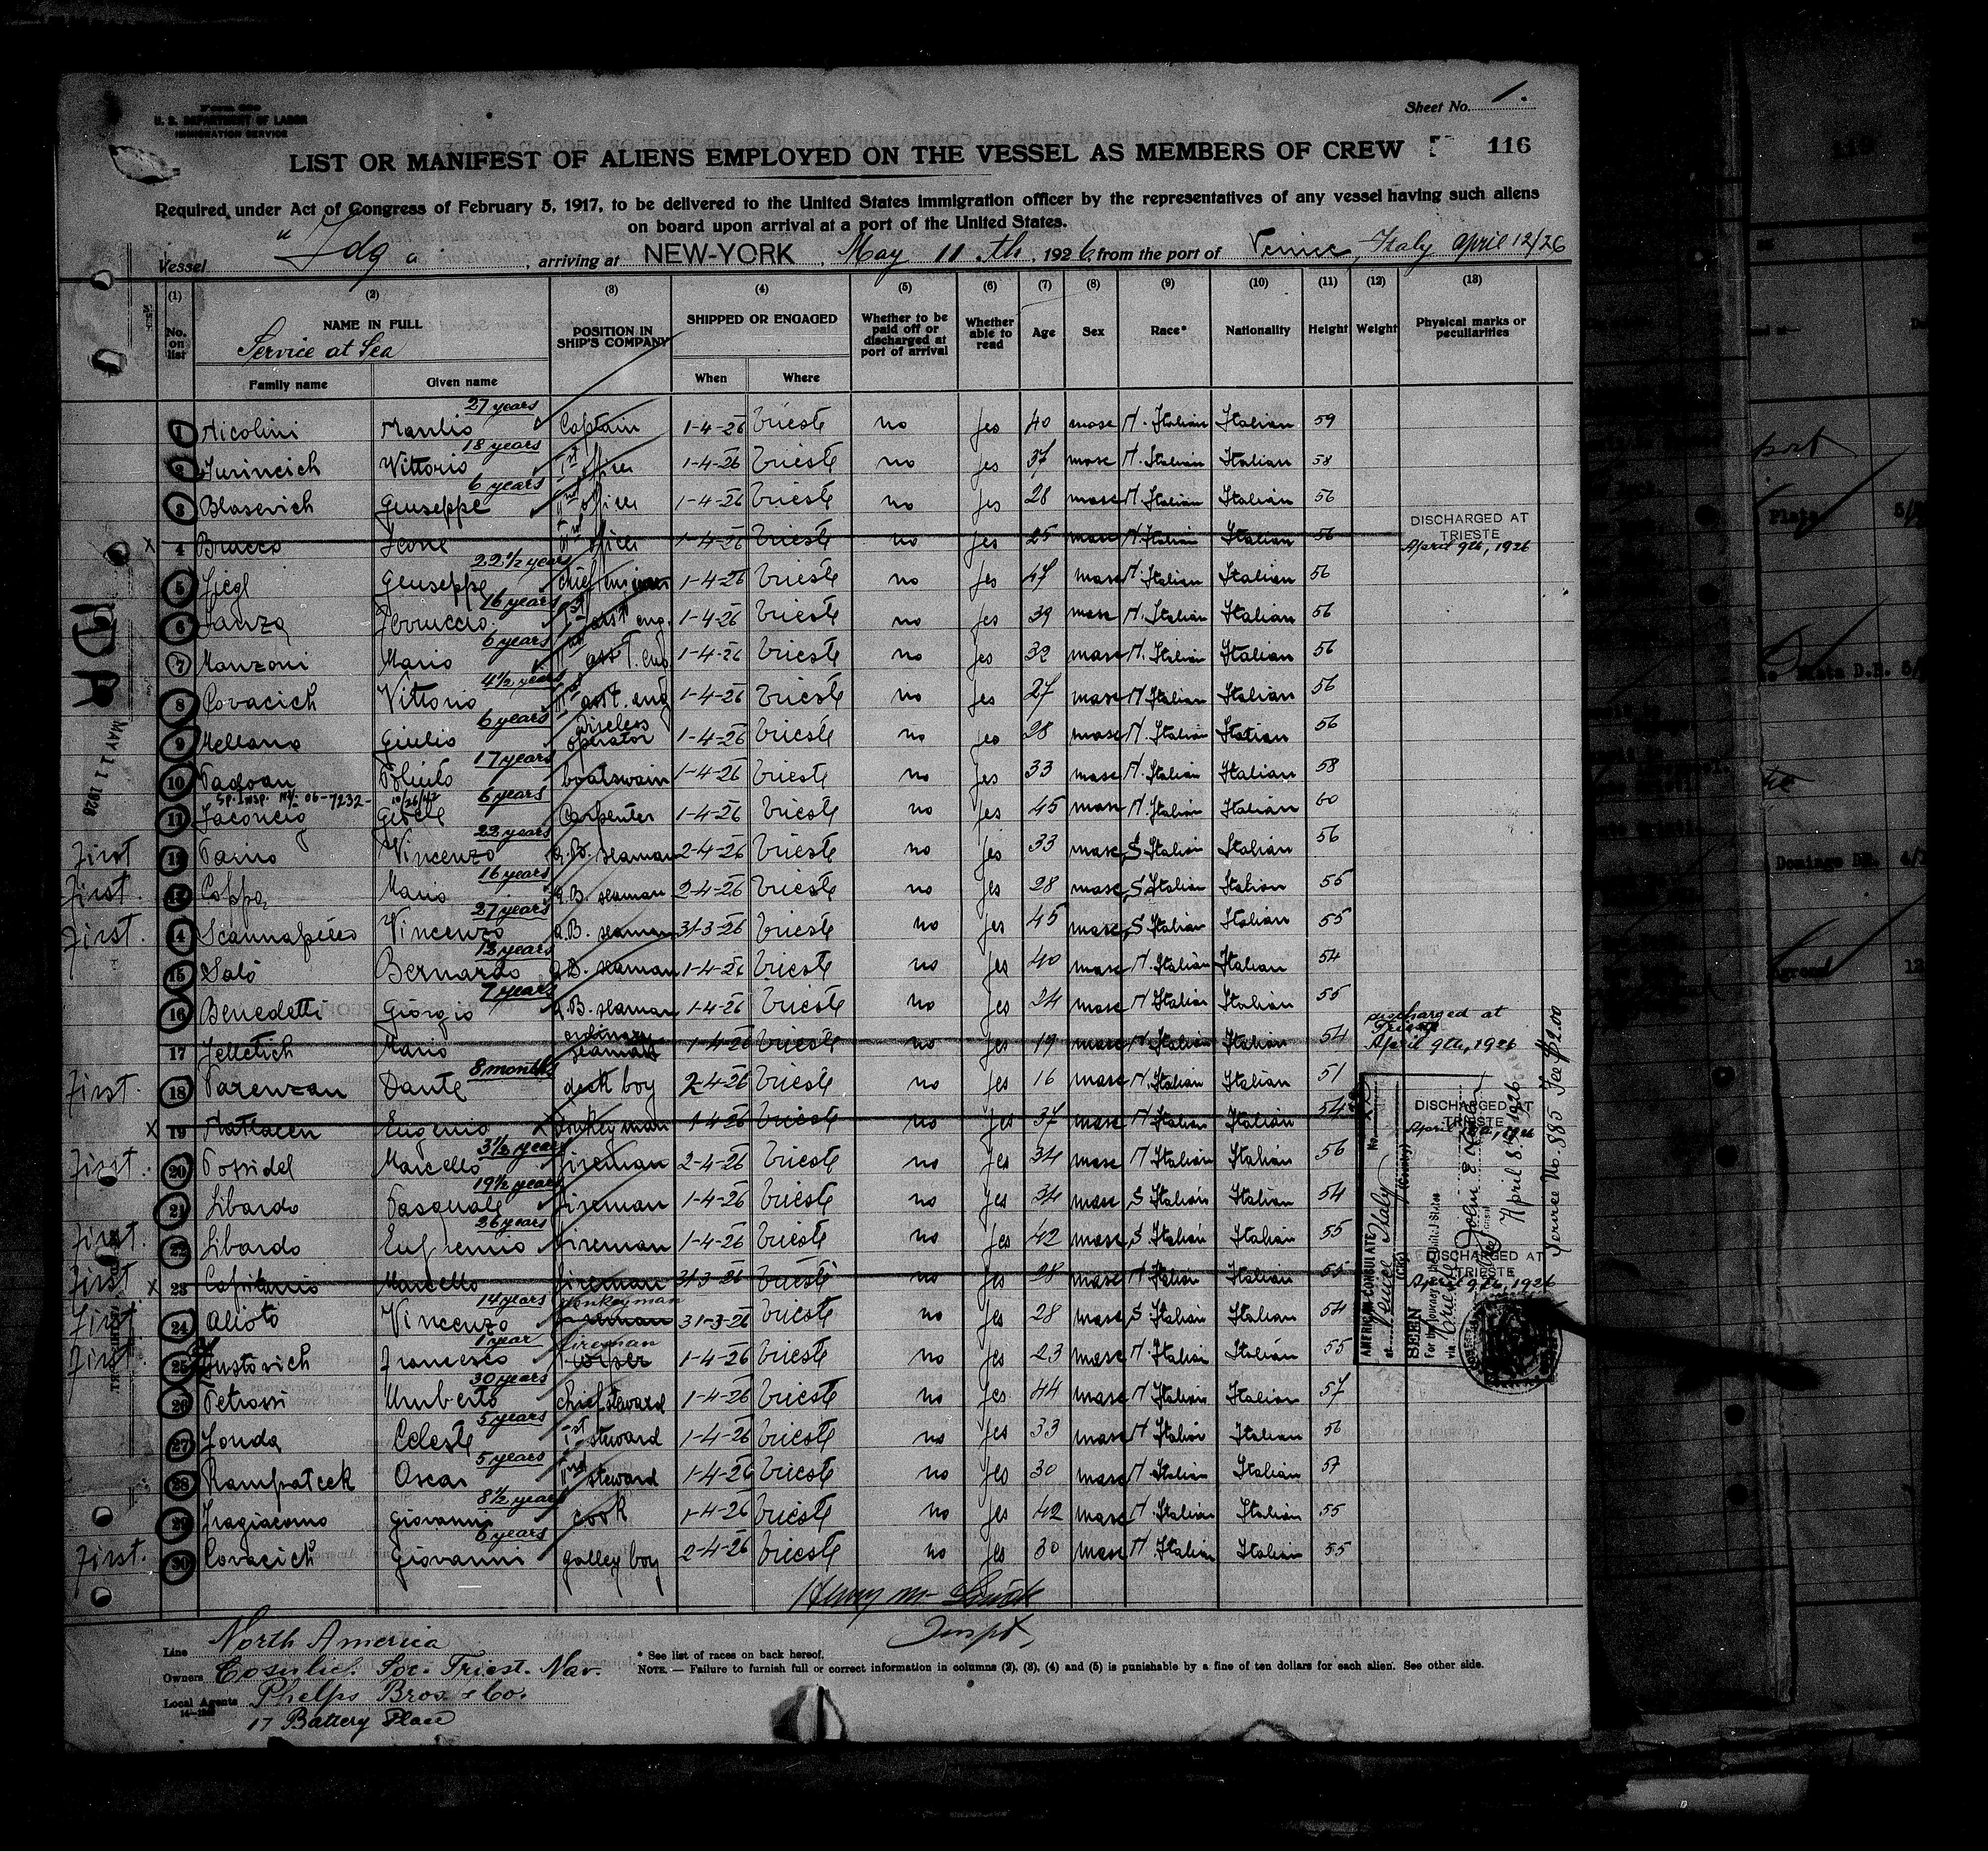 Form 680
U. S. DEPARTMENT OF LABOR
IMMIGRATION SERVICE
Sheet No. 1.
LIST OR MANIFEST OF ALIENS EMPLOYED ON THE VESSEL AS MEMBERS OF CREW 116
Required under Act of Congress of February 5, 1917, to be delivered to the United States immigration officer by the representatives of any vessel having such aliens
on board upon arrival at a port of the United States.
Vessel "Ida", arriving at NEW-YORK, May 11th, 1926, from the port of Venice, Italy April 12/26
(1) (2) (3) (4) (5) (6) (7) (8) (9) (10) (11) (12) (13)
No. on list NAME IN FULL POSITION IN SHIP'S COMPANY SHIPPED OR ENGAGED Whether to be paid off or discharged at port of arrival Whether able to read Age Sex Race* Nationality Height Weight Physical marks or peculiarities
Service at Sea
Family name Given name When Where
27 years
1 Nicolini Manlio Captain 1-4-26 Trieste no yes 40 masc N. Italian Italian 59
18 years
2 Jurincich Vittorio 1st officer 1-4-26 Trieste no yes 37 masc N. Italian Italian 58
6 years
3 Blasevich Giuseppe IInd officer 1-4-26 Trieste no yes 28 masc N. Italian Italian 56
4 Bracco Leone officer 1-4-26 Trieste no yes 25 masc N. Italian Italian 56 DISCHARGED AT TRIESTE April 9th, 1926
22 1/2 years
5 Giuseppe chief engineer 1-4-26 Trieste no yes 47 masc N. Italian Italian 56
16 years
6 Lanza Ferruccio 1st asst eng. 1-4-26 Trieste no yes 39 masc N. Italian Italian 56
6 years
7 Manzoni Mario asst. eng 1-4-26 Trieste no yes 32 masc N. Italian Italian 56
4 1/2 years
8 Covacich Vittorio asst. eng 1-4-26 Trieste no yes 27 masc N. Italian Italian 56
6 years
9 Mellano Giulio wireless operator 1-4-26 Trieste no yes 28 masc N. Italian Italian 56
17 years
10 Padoan boatswain 1-4-26 Trieste no yes 33 masc N. Italian Italian 58
Sp. Insp. NY. 06-7232- 10/26/42 6 years
11 Carpenter 1-4-26 Trieste no yes 45 masc N. Italian Italian 60
22 years
First 12 Vincenzo A.B. seaman 2-4-26 Trieste no yes 33 masc S Italian Italian 56
16 years
First. 13 Coppa Mario A.B. seaman 2-4-26 Trieste no yes 28 masc S Italian Italian 56
27 years
First. 14 Scannapieco Vincenzo A.B. seaman 31-3-26 Trieste no yes 45 masc S Italian Italian 55
13 years
15 Salò Bernardo A.B. seaman 1-4-26 Trieste no yes 40 masc N. Italian Italian 54
7 years
16 Benedetti Giorgio A.B. seaman 1-4-26 Trieste no yes 24 masc N Italian Italian 55
17 Jelletich Mario ordinary seaman 1-4-26 Trieste no yes 19 masc N. Italian Italian 54 discharged at Trieste April 9th, 1926
8 months
First. 18 Parenzan Dante deck boy 2-4-26 Trieste no yes 16 masc N. Italian Italian 51
x 19 Eugenio donkeyman 1-4-26 Trieste no yes 37 masc N Italian Italian 54 DISCHARGED AT TRIESTE
3 1/2 years
First. 20 Possidel Marcello fireman 2-4-26 Trieste no yes 34 masc N Italian Italian 56
19 1/2 years
21 Libardo Pasquale fireman 1-4-26 Trieste no yes 34 masc S Italian Italian 54
26 years
First. 22 Libardo Eufremio fireman 1-4-26 Trieste no yes 42 masc S. Italian Italian 55
First x 23 Capitanio Marcello fireman 31-3-26 Trieste no yes 28 masc N Italian Italian 55 DISCHARGED AT TRIESTE April 9th, 1926
14 years donkeyman
First 24 Alioto Vincenzo fireman 31-3-26 Trieste no yes 28 masc S Italian Italian 54
1 year fireman
First 25 Francesco 1-4-26 Trieste no yes 23 masc N Italian Italian 55
30 years
26 Petrossi Umberto chief steward 1-4-26 Trieste no yes 44 masc N Italian Italian 57
5 years
27 Fonda Celeste 1st steward 1-4-26 Trieste no yes 33 masc N Italian Italian 56
5 years
28 Rampateck Oscar steward 1-4-26 Trieste no yes 30 masc N Italian Italian 57
8 1/2 years
29 Fragiacomo Giovanni cook 1-4-26 Trieste no yes 42 masc N Italian Italian 55
6 years
First. 30 Covacich Giovanni galley boy 2-4-26 Trieste no yes 30 masc N. Italian Italian 55
MAY 11 1926
AMERICAN CONSULATE
at Venice Italy
(City) (Country)
SEEN
For the journey to the United States
via Trieste
April 8th 1926
Service No. 885 Fee $2.00
Inspt.
Line North America
Owners Cosulich Soc. Triest. Nav.
Local Agents Phelps Bros & Co.
17 Battery Place
* See list of races on back hereof.
NOTE.— Failure to furnish full or correct information in columns (2), (3), (4) and (5) is punishable by a fine of ten dollars for each alien. See other side.